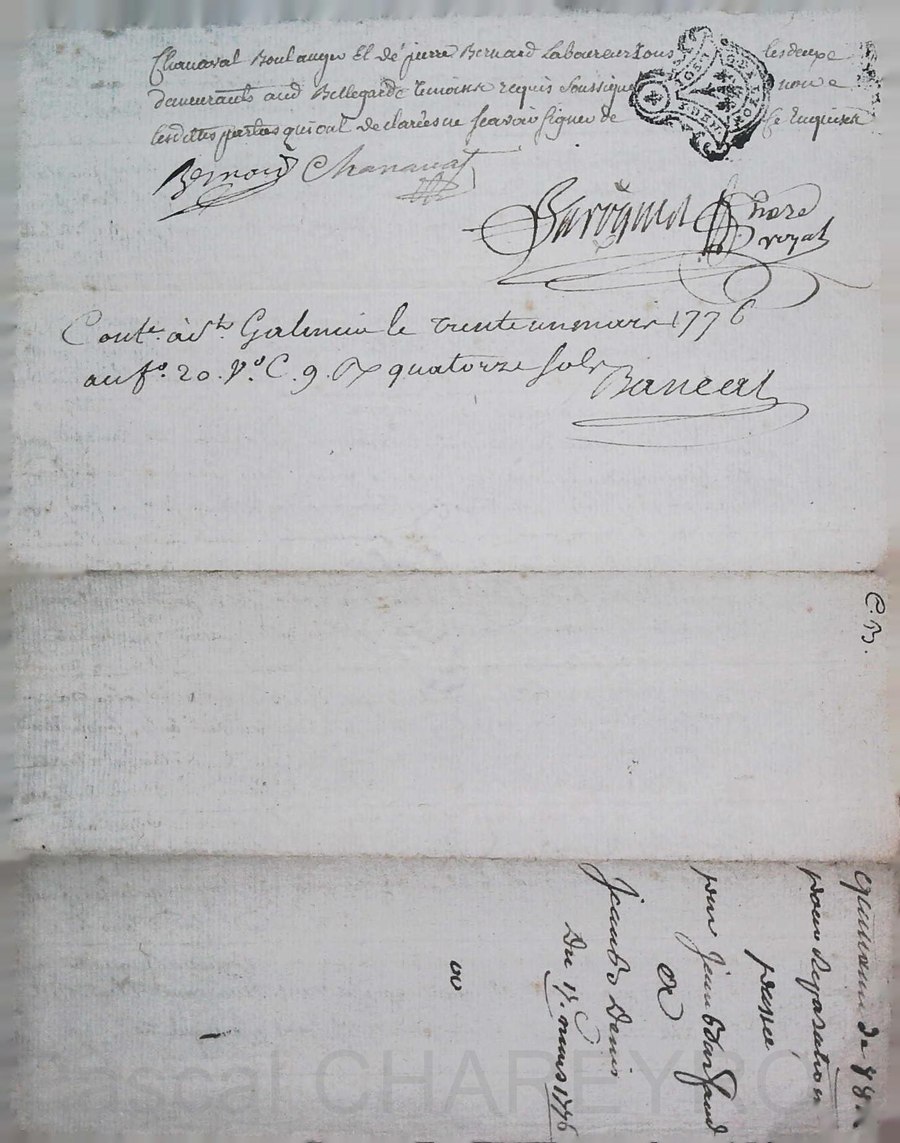 Chanavat Boulanger Et dé pierre Bernard Laboureur tous les deux
demeurants aud Bellegarde temoins requis Soussignés non
lesdittes parties qui ont declarées ne scavoir signer de ce Enquises
Bernard Chanavat
nore
royal
Cont.e à st. Galmier le trente un mars 1776
au f.o 20. v.o C. 9. R quatorze sols
Bancat
C. B.
quittance de
pour Reparation
passée
par Jean
a
Jean Denis
Du 17. mars 1776
Pascal CHAREYRO